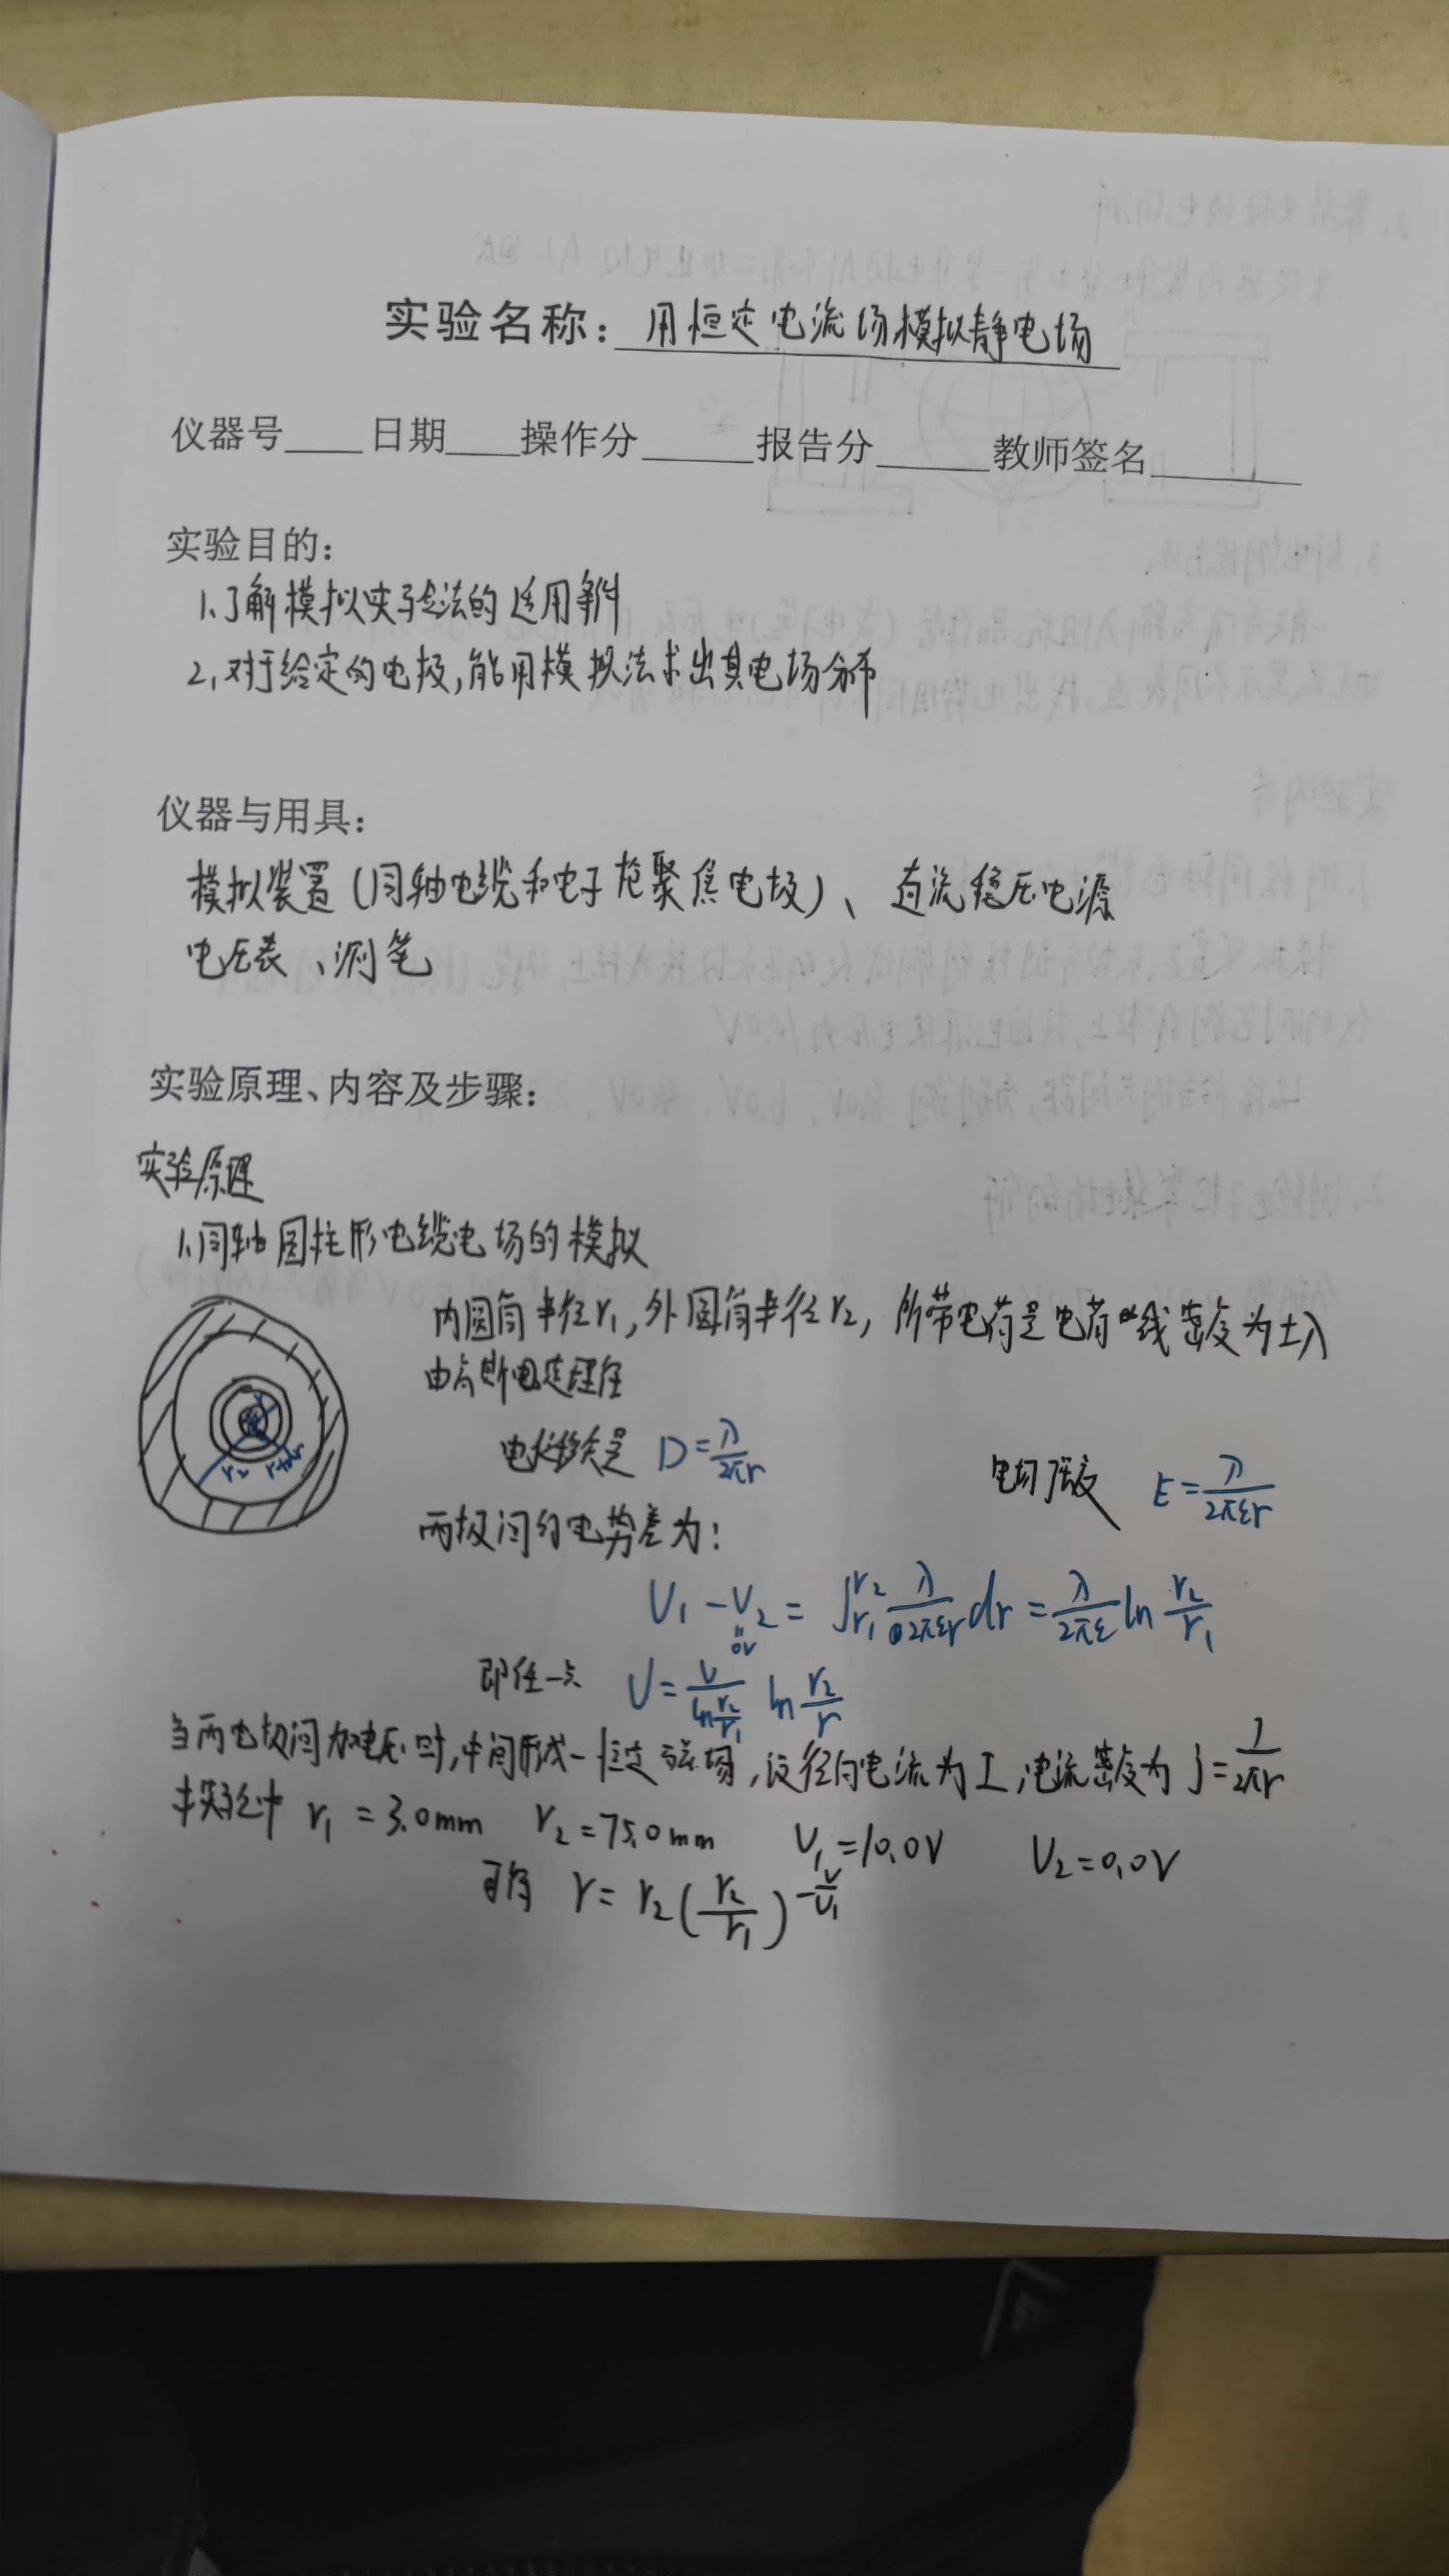 实验名称：用恒定电流场模拟静电场
仪器号____日期____操作分____报告分____教师签名____
实验目的：
1.了解模拟实验法的适用条件
2.对于给定的电极，能用模拟法求出其电场分布
仪器与用具：
模拟装置（同轴电缆和电子枪聚焦电极）、直流稳压电源
电压表、测笔
实验原理、内容及步骤：
实验原理
1.同轴圆柱形电缆电场的模拟
内圆筒半径r₁，外圆筒半径r₂，所带电荷是电荷线密度为±λ
由高斯电定理在
r₂ r+dr
电位移矢量 D=λ/2πr 电场强度 E=λ/2πεr
两极间的电势差为：
U₁-U₂=∫r₁r₂ λ/2πεr dr=λ/2πε ln r₂/r₁
0V
即任一点 U=V/ln r₂/r₁ ln r₂/r
当两电极间加电压时，中间形成一恒定 场，设径向电流为I，电流密度为j=I/2πr
本实验中 r₁=3.0mm r₂=75.0mm U₁=10.0V U₂=0.0V
可得 r=r₂(r₂/r₁)^-V/U₁